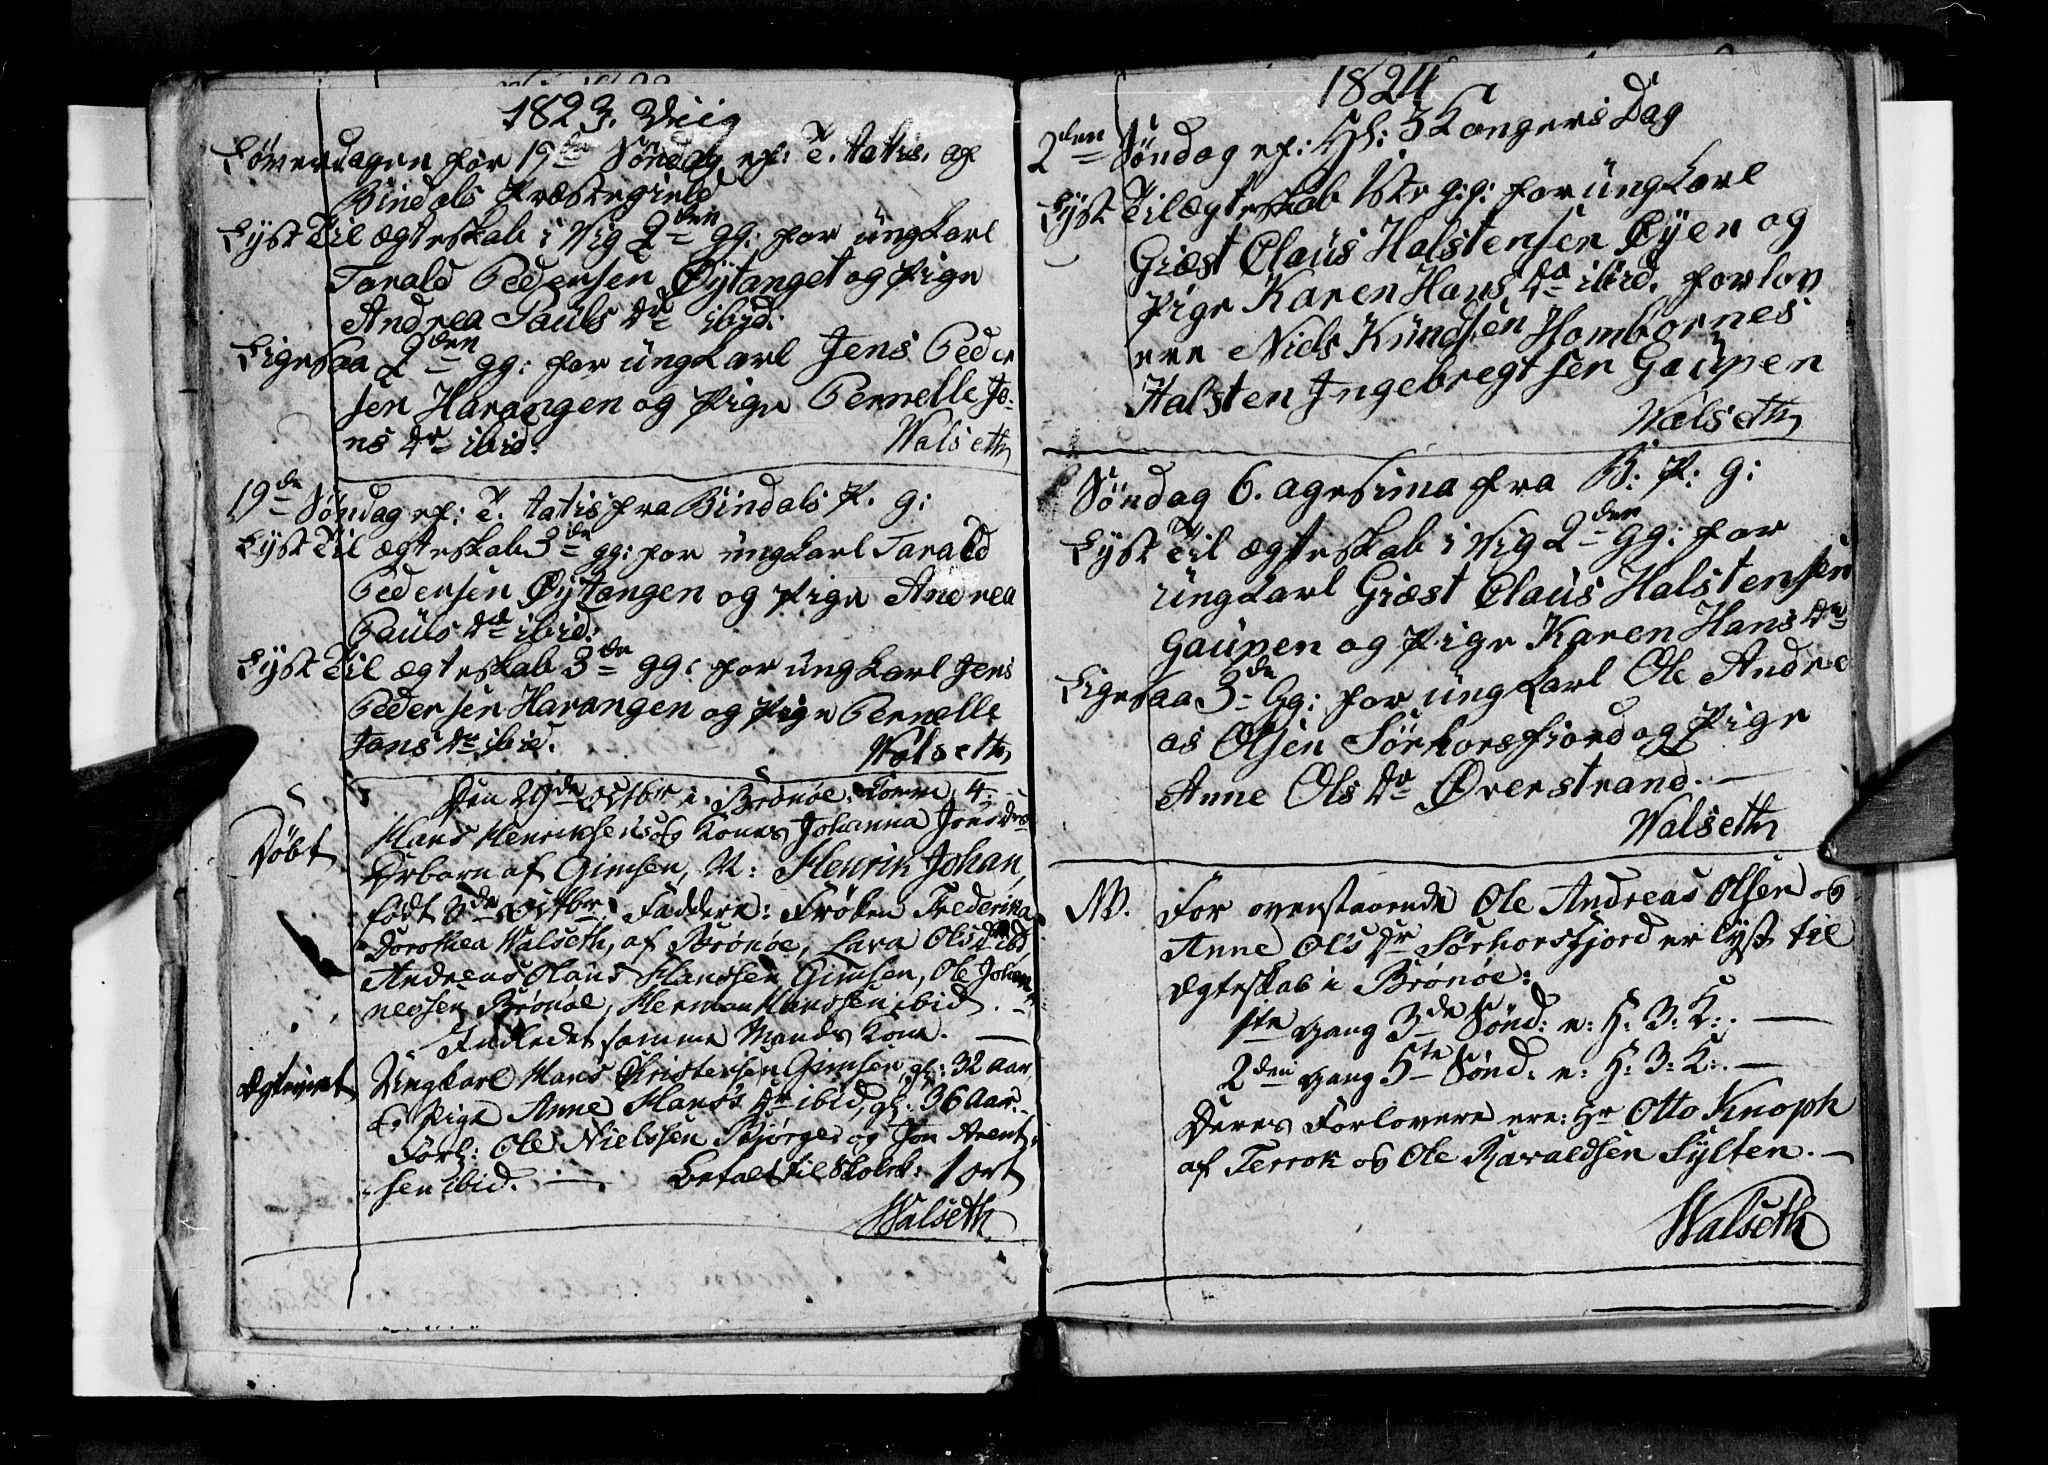 1823. Viig
Löverdagen för 19de Söndag ef: T. tatis, af
Bindals Præstegield
Lyst Til ægteskab i Vig 2den gg: for ungkarl
Tarald Pedersen Øytanget og Pige
Andrea Pauls dr ibid:
Ligesaa 2den gg: for ungkarl Jens Peder
sen Harangen og Pige Pernelle Jo-
ns dr ibid.
Walseth
19de Söndag ef: T. tatis fra Bindals P. g:
Lyst Til ægteskab 3de gg: for ungkarl Tarald
Pedersen Øytangen og Pige Andrea
Pauls dr ibid:
Lyst Til ægteskab 3de gg: for ungkarl Jens
Pedersen Harangen og Pige Pernelle
Jons dr ibid.
Walseth
Den 29de Octbr i Brönöe. Comm. 4.
Döbt
Hans Henriksens og Kones Johanna Jonsdrs
Ægtebarn af Gimsen, N: Henrik Johan,
födt 8de Octbr. Faddere: Fröken Frederika
Dorothea Walseth, af Brönöe, Lava Olsdr ibid,
Andreas Olaus Hanssen Gimsen, Ole Johan-
nessen Brönöe, Herman Hanssen ibid. -
Indledet samme Mands Kone. —
Ægteviet
Ungkarl Hans Christensen Gimsen, gl: 32 aar,
og Pige Anne Hans's dr ibid, gl: 36 Aar. -
Forl: Ole Nielssen og Jon Arent-
sen ibid. — Betalt til Skolek: 1 ort
Walseth
1824
2den Söndag ef: H: 3 Kongers Dag
Lyst Til ægteskab 1ste g:g: for ungkarl
Giæst Claus Halstensen Øyen og
Pige Karen Hans dr ibid. forlov
ere Niels Knudsen Hombornes
Halsten Ingebregtsen Gaupen
Walseth
Söndag 6. agesima fra B: P: g:
Lyst Til ægteskab i Vig 2den gg: for
ungkarl Giæst Claus Halstensen
Gaupen og Pige Karen Hans dr
Ligesaa 3de Gg: for ungkarl Ole Andre
as Olsen Sörhorsfiord og Pige
Anne Ols dr Øverstrand. —
Walseth
NB.
For ovenstaaende Ole Andreas Olsen og
Anne Ols dr Sörhorsfjord er lyst til
Ægteskab i Brönöe:
1ste Gang 3de Sönd: e: H: 3: K:. —
2den Gang 5te Sönd: e: H: 3: K:. —
Deres Forlovere ere: Hr Otto Knoph
af Terrok og Ole Haraldsen Sylten. —
Walseth